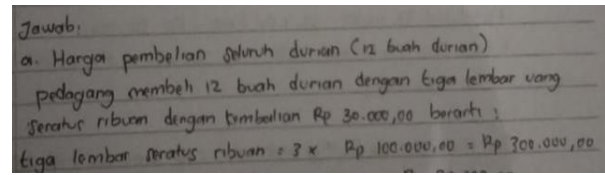 Jawab:
a. Harga pembelian seluruh durian (12 buah durian)
pedagang membeli 12 buah durian dengan tiga lembar uang
seratus ribuan dengan kembalian Rp 30.000,00 berarti :
tiga lembar seratus ribuan = 3 x Rp 100.000,00 = Rp 300.000,00